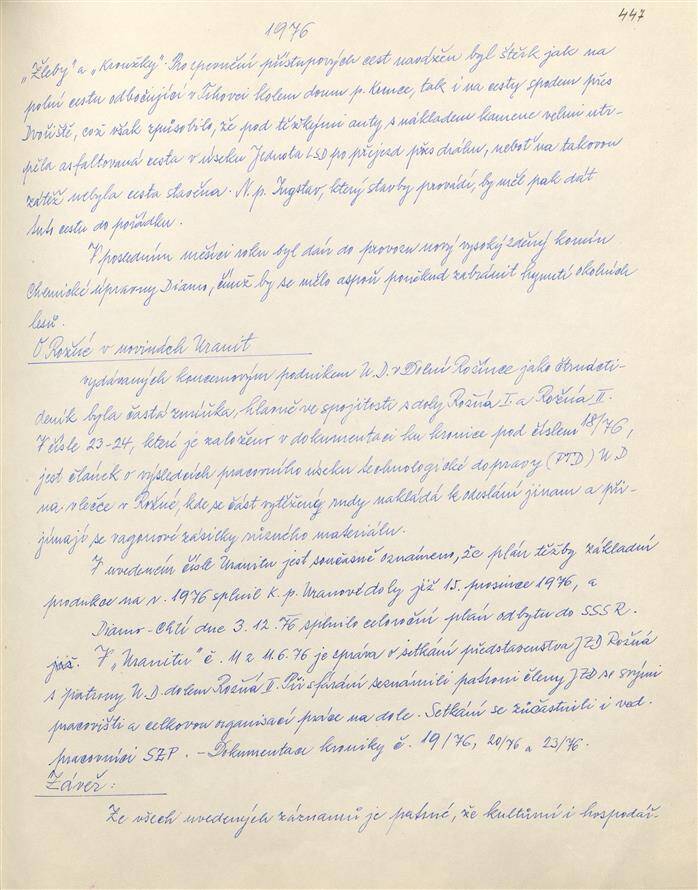 447
1976
„Žleby" a „Kroužky". Pro zpevnění přístupových cest navážen byl štěrk jak na
polní cestu odbočující v Tihovci kolem domu p. Komce, tak i na cesty spodem přes
Dvořiště, což však způsobilo, že pod těžkými auty s nákladem kamene velmi utr-
pěla asfaltovaná cesta v úseku Jednota LSD po přejezd přes dráhu, neboť na takovou
zátěž nebyla cesta stavěna. N.p. Ingstav, který stavby provádí, by měl pak dát
tuto cestu do pořádku.
V posledním měsíci roku byl dán do provozu nový vysoký zděný komín
Chemické úpravny Diamo, čímž by se mělo aspoň poněkud zabránit hynutí okolních
lesů.
O Rožné v novinách Uranit
vydávaných koncernovým podnikem U.D. v Dolní Rožínce jako čtrnácti-
deník byla častá zmínka, hlavně ve spojitosti s doly Rožná I. a Rožná II.
V čísle 23-24, které je založeno v dokumentaci ku kronice pod číslem 18/76,
jest článek o výsledcích pracovního úseku technologické dopravy (PTD) U D
na vlečce v Rožné, kde se část vytěžené rudy nakládá k odeslání jinam a při-
jímají se vagonové zásilky různého materiálu.
V uvedeném čísle Uranitu jest současně oznámeno, že plán těžby základní
produkce na r. 1976 splnil k.p. Uranové doly již 15. prosince 1976, a
Diamo-Chtí dne 3.12.76 splnilo celoroční plán odbytu do SSSR.
již. V „Uranitu" č. 11 z 11.6.76 je zpráva o setkání představenstva JZD Rožná
s patrony U.D. dolem Rožná II. Při sfárání seznámili patroni členy JZD se svými
pracovišti a celkovou organisací práce na dole. Setkání se zúčastnili i ved.
pracovníci SZP. - Dokumentace kroniky č. 19/76, 20/76 a 23/76.
Závěr:
Ze všech uvedených záznamů je patrné, že kulturní i hospodář-